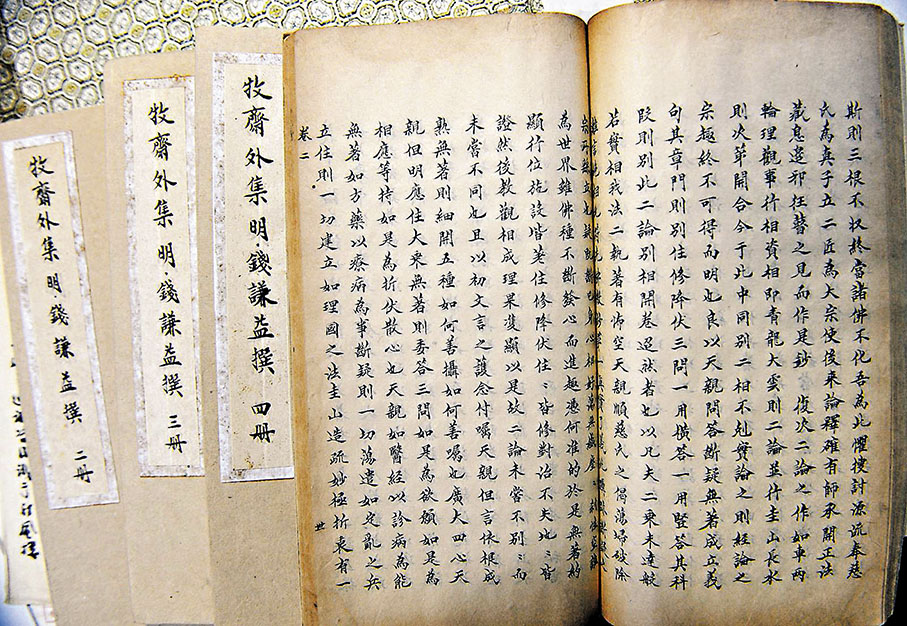 牧齋外集 明·錢謙益撰 二冊
牧齋外集 明·錢謙益撰 三冊
牧齋外集 明·錢謙益撰 四冊
斯則三根不收終當諸佛不化吾為此懼搜討源流奉慈
氏為真子五二匠為大宗使後來論釋確有師承開正法
藏息邪狂瞽之見而作是鈔 復次二論之作如車兩
輪理觀事行相資相即青龍大雲則二論並行圭山長水
則次第開合今于此中同別二相不剋實論之則經論之
宗趣終不可得而明也良以天親問答斷疑無著成立義
句其章門則別住修降伏三問一用橫答一用豎答其科
段則別此二論別相開卷迢然者也以凡夫二乘未達般
若實相我法二執著有怖空天親順慈氏之偈蕩掃破除
為世界雖佛種不斷發心而進趣憑何准的於是無著約
顯行位施設皆著住修降伏住〻皆修對治不失此〻皆
證然後教觀相成理果渡顯以是故二論未當不別〻而
未嘗不同也且以初文言之護念付囑天親但言依根成
熟無著則細開五種如何善攝如何善囑也廣大四心天
親但明應住大乘無著則委答三問如是為欲願如是為
相應等持如是為折伏散心也天親如醫經以診病為能
無著如方藥以療病為事斷疑則一切蕩遣如定亂之兵
立住則一切建立如理國之法圭山造疏妙極折衷有一
卷二